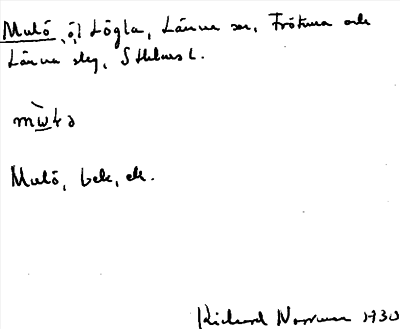 Mutö, öl Lögla, Länna sn, Frötuna och
Länna skg, Sthlms l.
mẁtə
Mutö, bek, ek.
Richard Norrman 1930